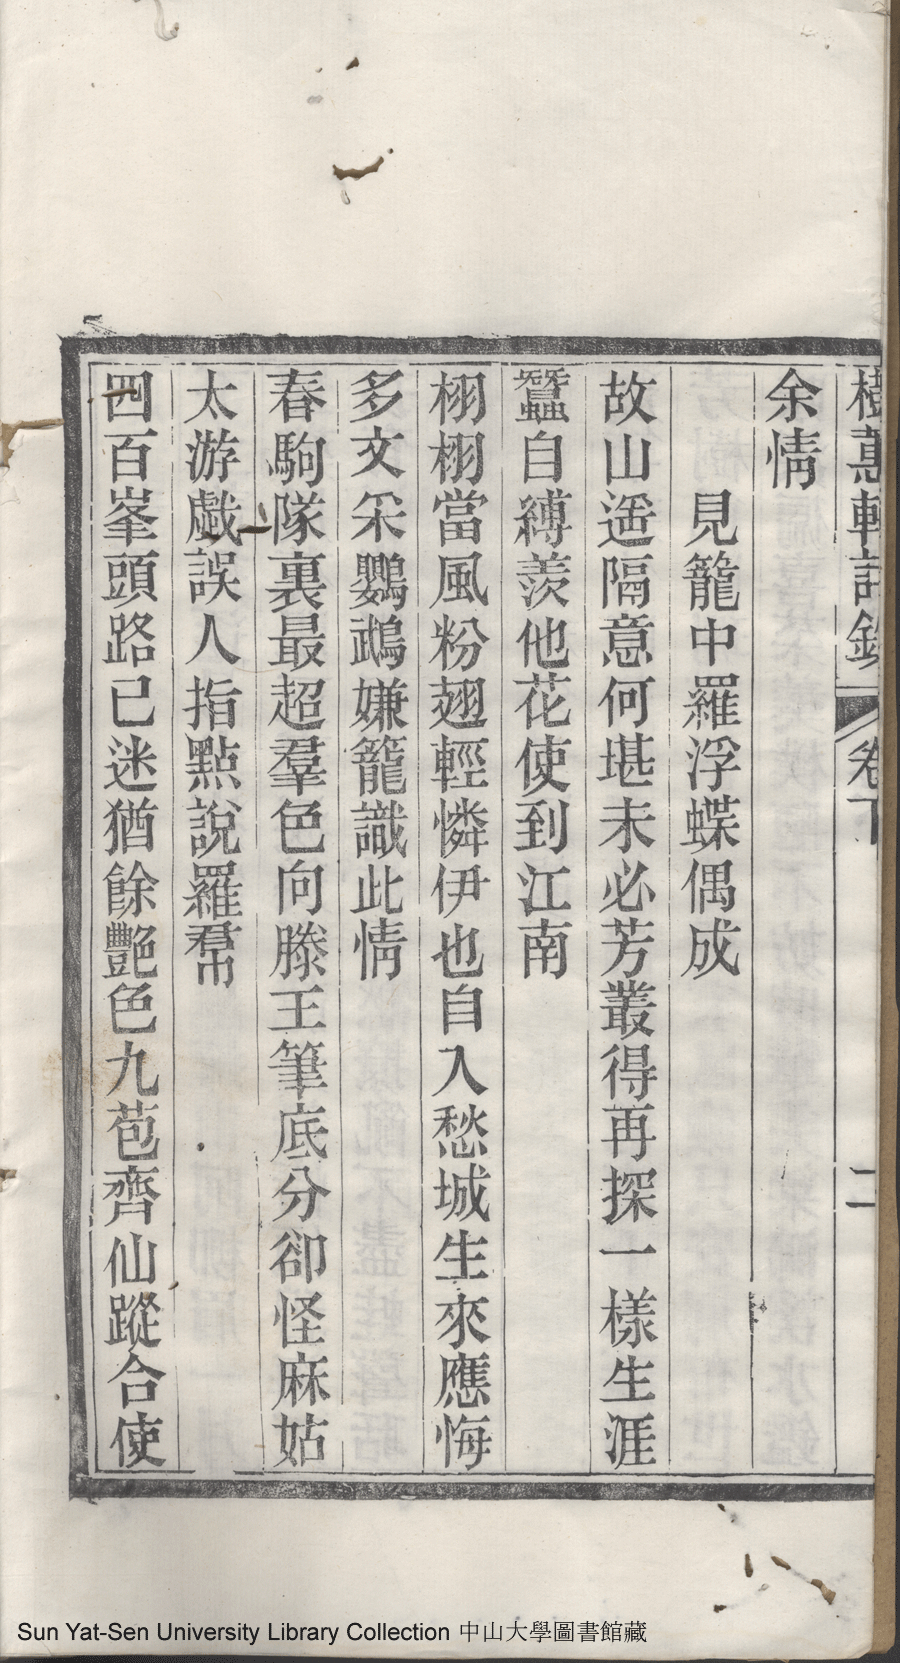 樹蕙軒詩鈔 卷下 二
余情
見籠中羅浮蝶偶成
故山遥隔意何堪未必芳叢得再探一樣生涯
蠶自縛羨他花使到江南
栩栩當風粉翅輕憐伊也自入愁城生來應悔
多文采鸚鵡嫌籠識此情
春駒隊裏最超羣色向滕王筆底分卻怪麻姑
太游戲誤人指點說羅帬
四百峯頭路已迷猶餘艷色九苞齊仙蹤合使
Sun Yat-Sen University Library Collection 中山大學圖書館藏